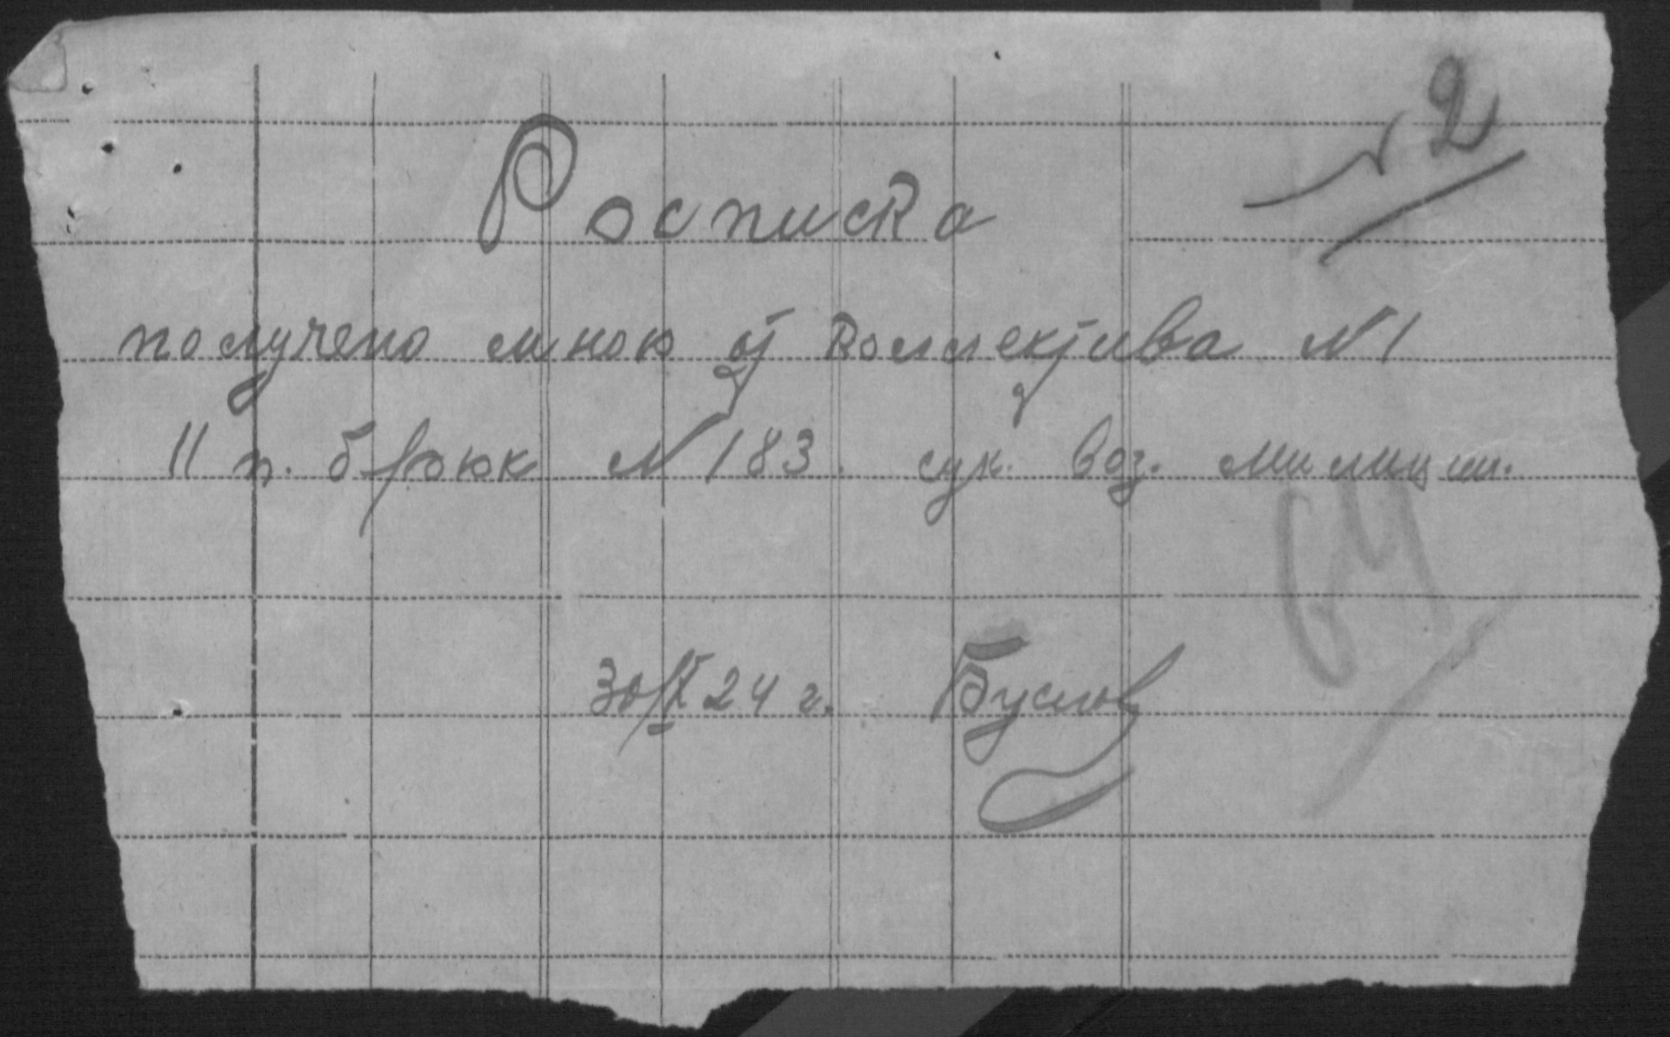 № 2
Росписка
получено мною от коллектива №1
11 п. брюк №183. сук. воз. милици.
64
30/X 24 г. Буслов